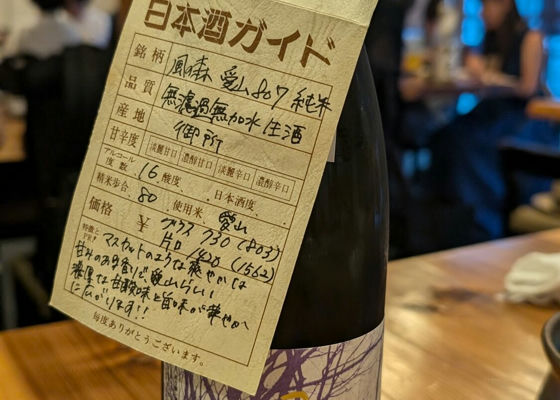 日本酒ガイド
銘柄 風の森 愛山807 純米
品質 無濾過無加水生酒
産地 御所
甘辛度 淡麗甘口 濃醇甘口 淡麗辛口 濃醇辛口
アルコール度数 16 酸度 . 日本酒度 .
精米歩合 80 使用米 愛山
価格 ¥ グラス 730 (803)
片口 1420 (1562)
マスカットのような爽やかな
甘みのある香りと、愛山らしい
濃厚な甘酸味と旨味が爽やかへ
に広がります!!
毎度ありがとうございます。